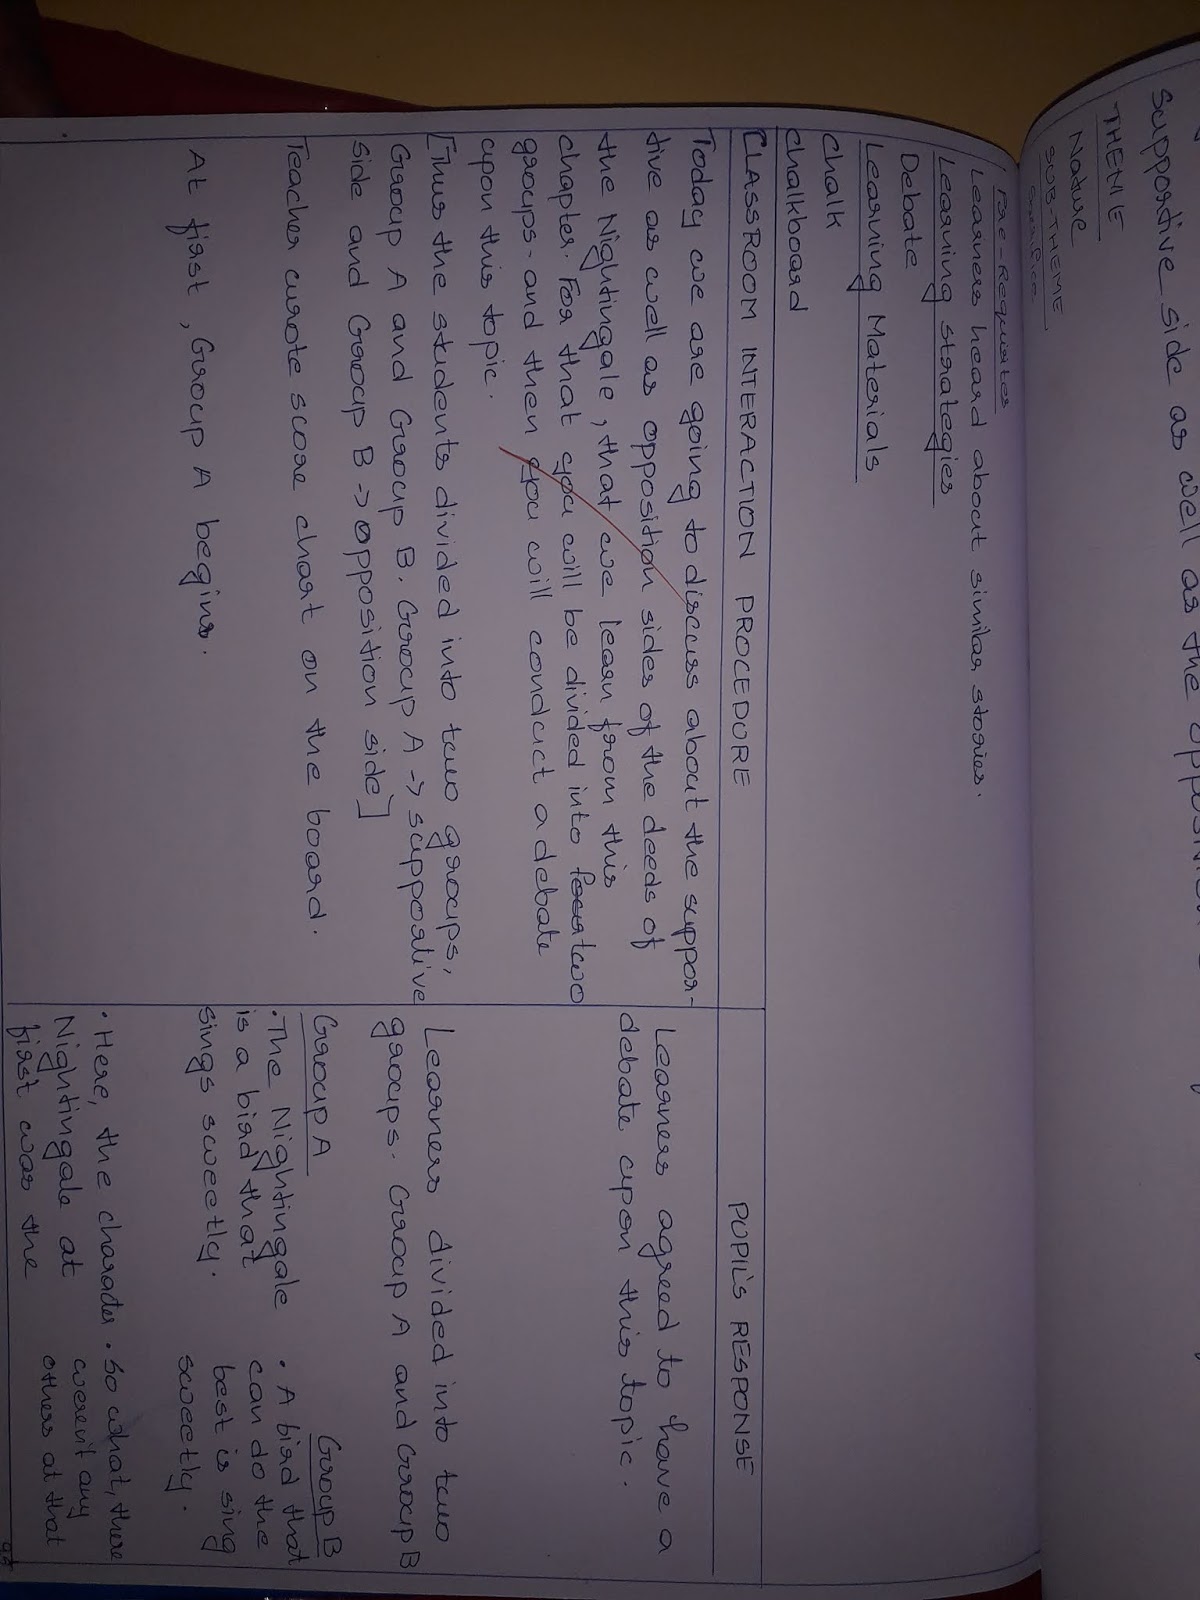 supportive side as well as the opposition
THEME
Nature
SUB-THEME
Sacrifice
Pre-Requisites
Learners heard about similar stories.
Learning strategies
Debate
Learning Materials
Chalk
Chalkboard
CLASSROOM INTERACTION PROCEDURE
PUPIL'S RESPONSE
Today we are going to discuss about the suppor-
tive as well as opposition sides of the deeds of
the Nightingale, that we learn from this
chapter. For that you will be divided into two
groups - and then you will conduct a debate
upon this topic.
Learners agreed to have a
debate upon this topic.
[Thus the students divided into two groups,
Group A and Group B. Group A -> supportive
side and Group B -> opposition side]
Learners divided into two
groups. Group A and Group B
Teacher wrote score chart on the board.
At first, Group A begins.
Group A
. The Nightingale
is a bird that
sings sweetly.
. Here, the character
Nightingale at
first was the
Group B
. A bird that
can do the
best is sing
sweetly.
. So what, there
weren't any
others at that